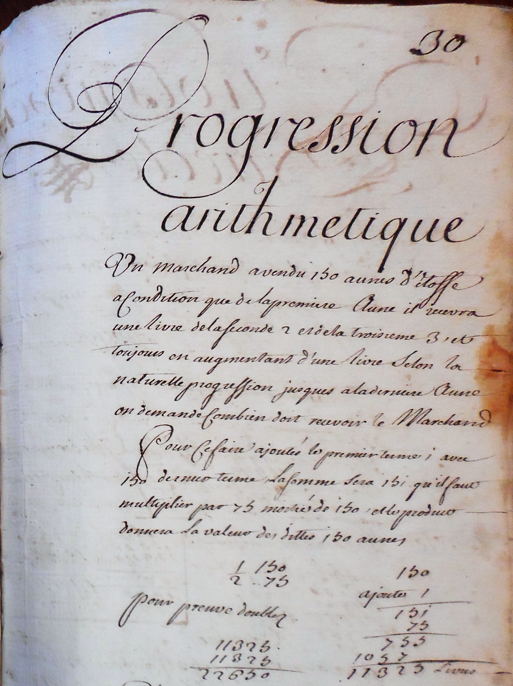 30
Progression
arithmetique
Un marchand a vendu 150 aunes d'Etoffe
a Condition que de la premiere Aune il recevra
une livre de la seconde 2 et de la troisieme 3, et
toujours en augmentant d'une livre Selon la
naturelle progression jusques a la derniere Aune
on demande Combien doit recevoir le Marchand
Pour Ce faire ajoutés le premier terme 1 avec
150 dernier terme la somme sera 151 qu'il faut
multiplier par 75 moitié de 150 et le produit
donnera La valeur des dittes 150 aunes
1/2 150 150
75 ajoutes 1
pour preuve doublez 151
75
11325 755
11325 1057
22650 11325 Livres